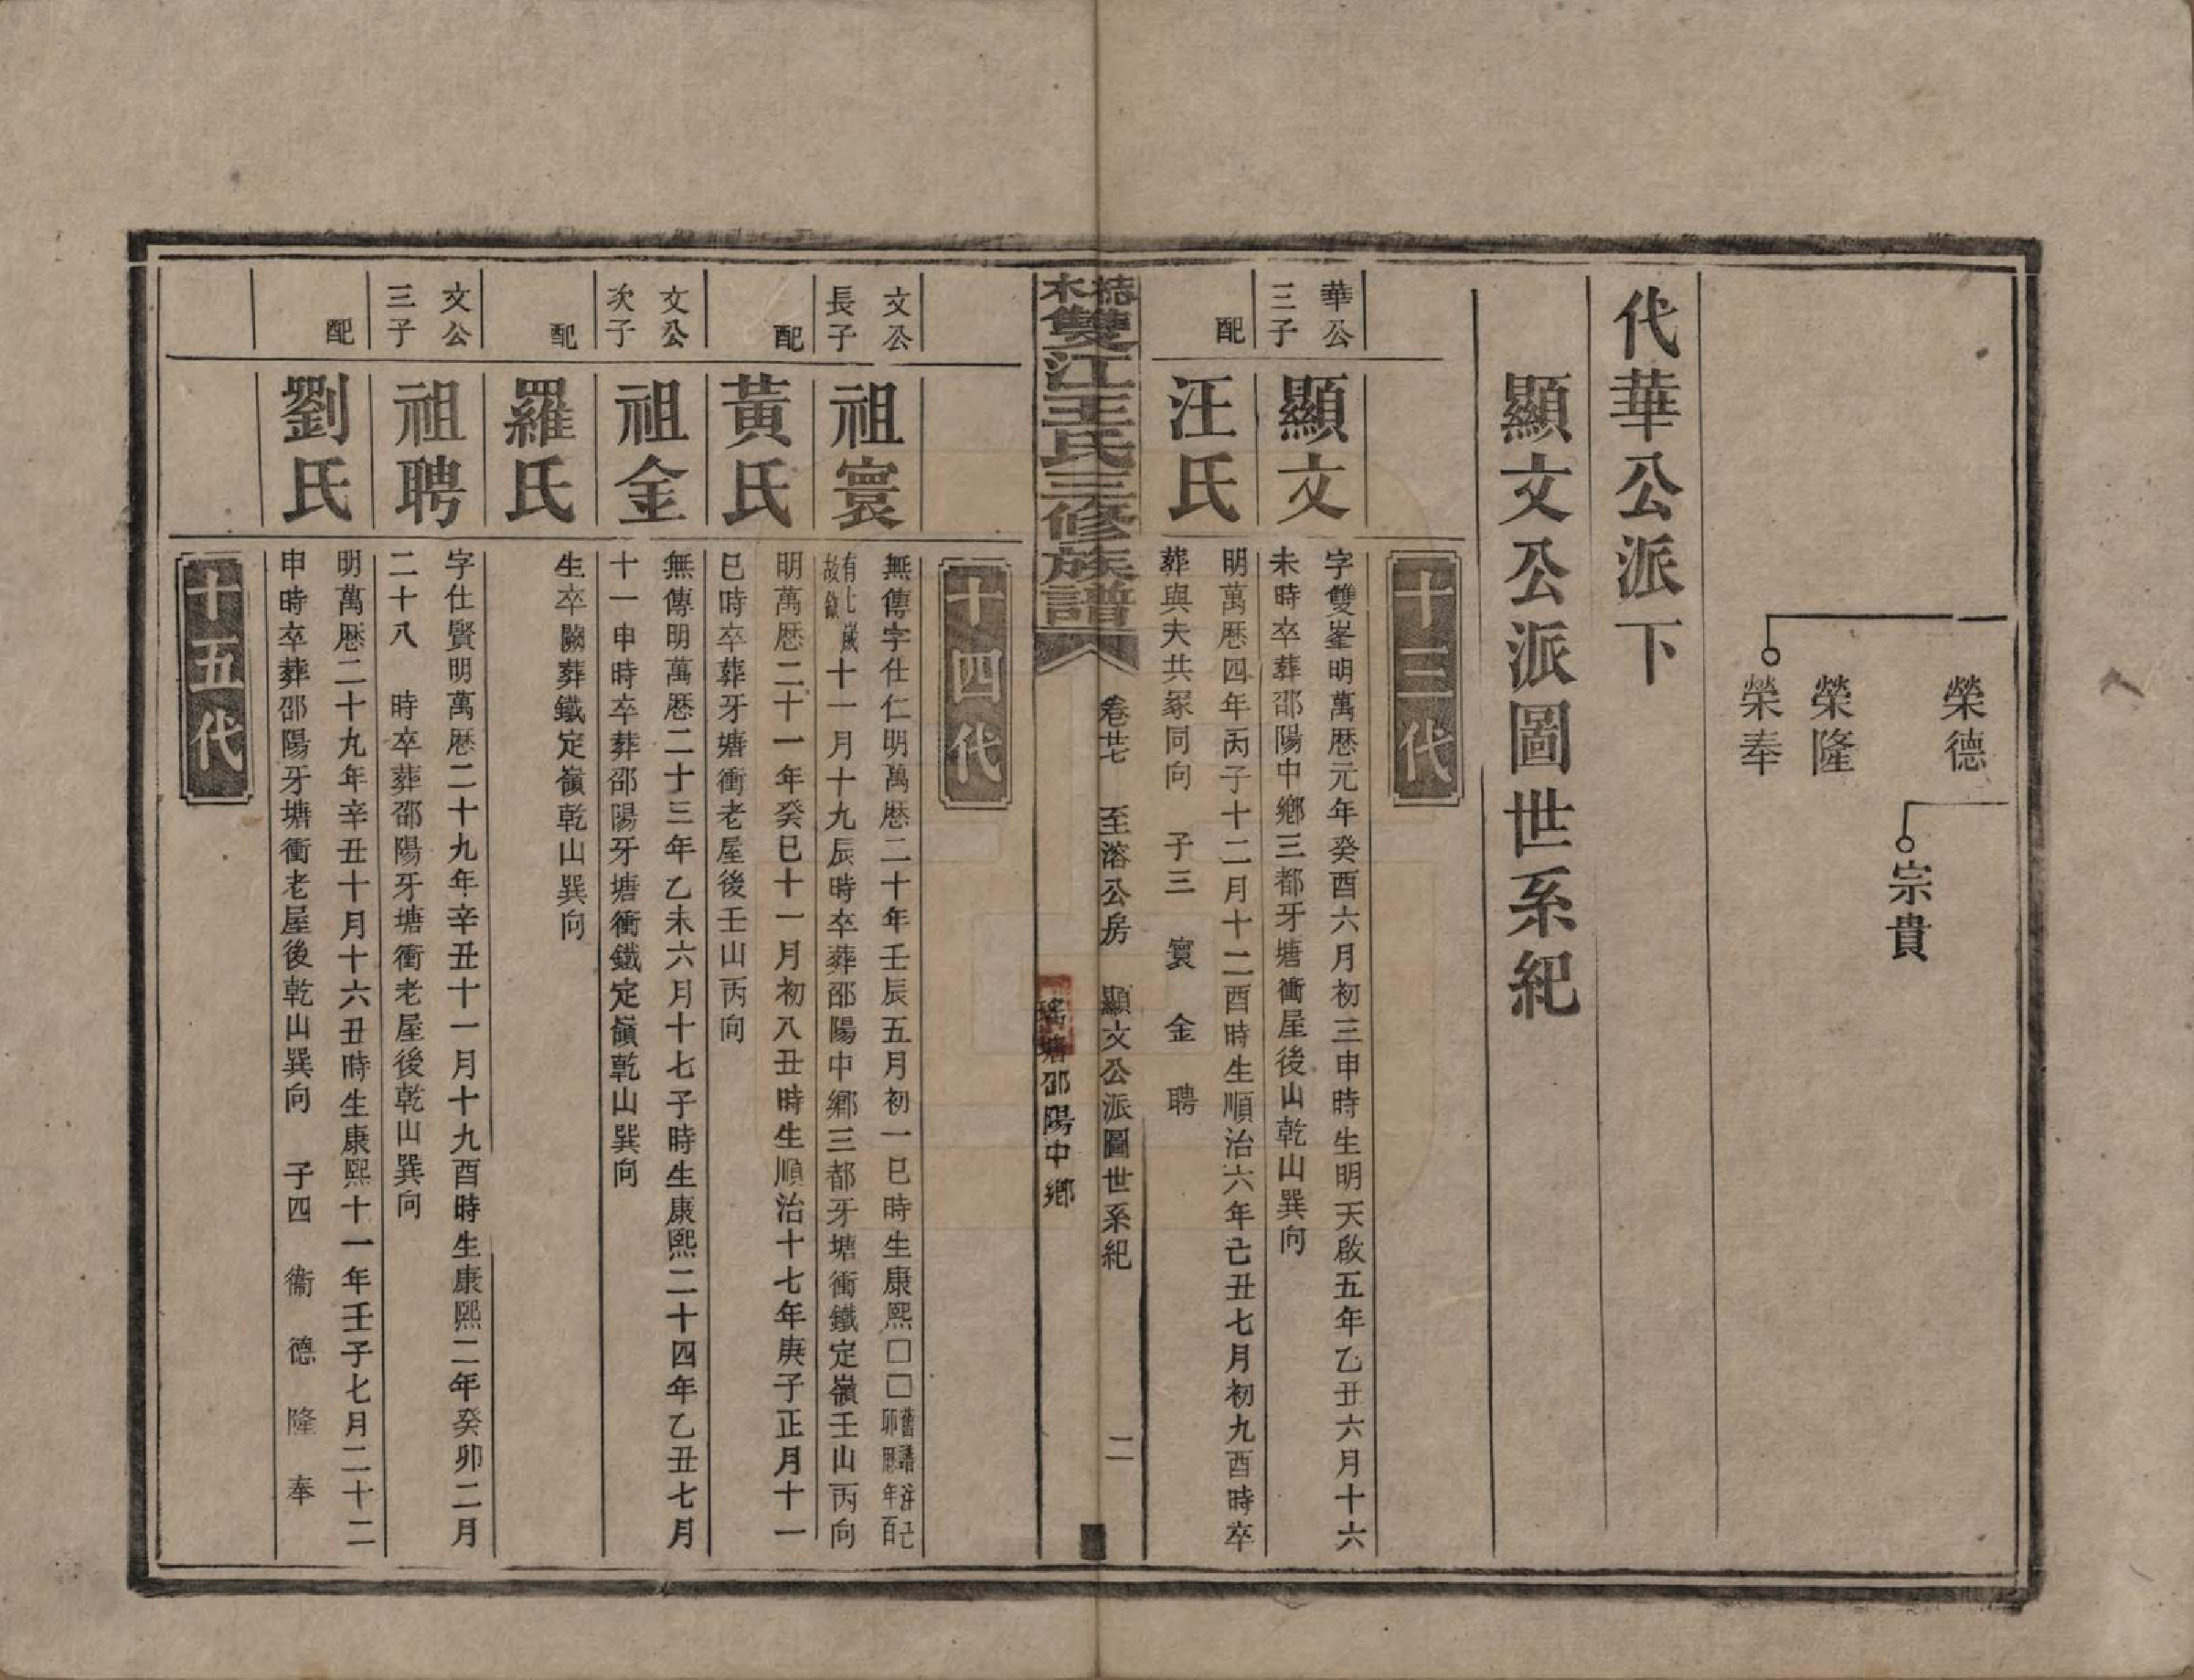 榮德
宗貴
榮隆
榮奉
代華公派下
顯文公派圖世系紀
十三代
華公
三子
顯文
字雙峯明萬厯元年癸酉六月初三申時生明天啟五年乙丑六月十六
未時卒葬邵陽中鄉三都牙塘衝屋後山乾山巽向
配
汪氏
明萬厯四年丙子十二月十二酉時生順治六年己丑七月初九酉時卒
葬與夫共冢同向 子三 寰 金 聘
雙江王氏三修族譜
卷廿 至溶公房 顯文公派圖世系紀 二
瑤塘邵陽中鄉
十四代
文公
長子
祖寰
無傳字仕仁明萬厯二十年壬辰五月初一巳時生康熙□□舊譜注己
卯厯年百
有七歲
故録
十一月十九辰時卒葬邵陽中鄉三都牙塘衝鐵定嶺壬山丙向
配
黃氏
明萬厯二十一年癸巳十一月初八丑時生順治十七年庚子正月十一
巳時卒葬牙塘衝老屋後壬山丙向
文公
次子
祖金
無傳明萬厯二十三年乙未六月十七子時生康熙二十四年乙丑七月
十一申時卒葬邵陽牙塘衝鐵定嶺乾山巽向
配
羅氏
生卒闕葬鐵定嶺乾山巽向
文公
三子
祖聘
字仕賢明萬厯二十九年辛丑十一月十九酉時生康熙二年癸卯二月
二十八 時卒葬邵陽牙塘衝老屋後乾山巽向
配
劉氏
明萬厯二十九年辛丑十月十六丑時生康熙十一年壬子七月二十二
申時卒葬邵陽牙塘衝老屋後乾山巽向 子四 衞 德 隆 奉
十五代